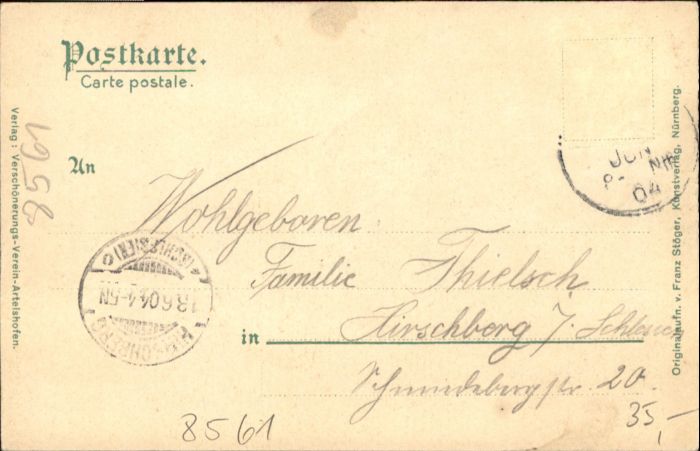 Postkarte.
Carte postale.
An
Wohlgeboren
Familie Thielsch
in Hirschberg i/
Schmiedebergstr. 20.
8561
35,-
8561
Verlag: Verschönerungs-Verein-Artelshofen.
Originalaufn. v. Franz Stöger, Kunstverlag, Nürnberg.
JUN
04
HIRSCHBERG
18.6.04.4-5N
(SCHLESIEN)